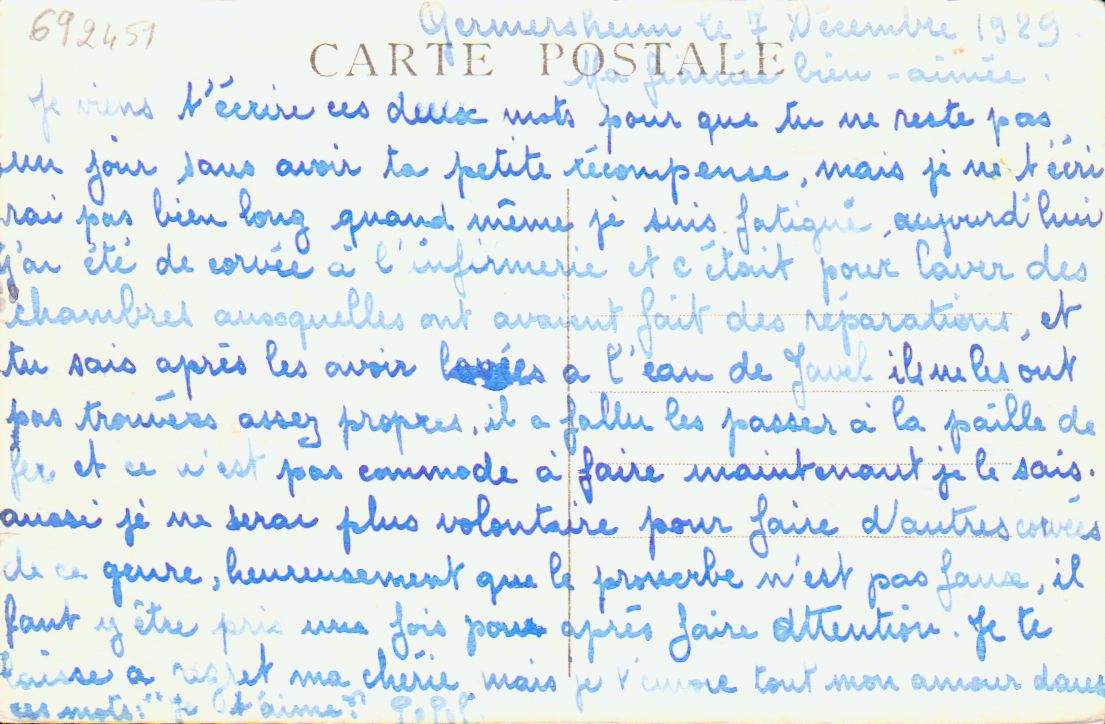 692451
Germersheim le 7 Décembre 1929.
CARTE POSTALE
Ma fiancée bien-aimée.
Je viens t'écrire ces deux mots pour que tu ne reste pas
un jour sans avoir ta petite récompense, mais je ne t'écri
rai pas bien long quand même je suis fatigué, aujourd'hui
j'ai été de corvée à l'infirmerie et c'était pour laver des
chambres auxquelles ont avaient fait des réparations, et
tu sais après les avoir lavées a l'eau de Javel ils ne les ont
pas trouvérs assez propres, il a fallu les passer à la paille de
fer et ce n'est pas commode à faire maintenant je le sais.
aussi je ne serai plus volontaire pour faire d'autres corvées
de ce genre, heureusement que le proverbe n'est pas faux, il
faut y être pris une fois pour après faire attention. Je te
laisse a regret ma chérie, mais je t'envoie tout mon amour dans
ces mots: "Je t'aime"